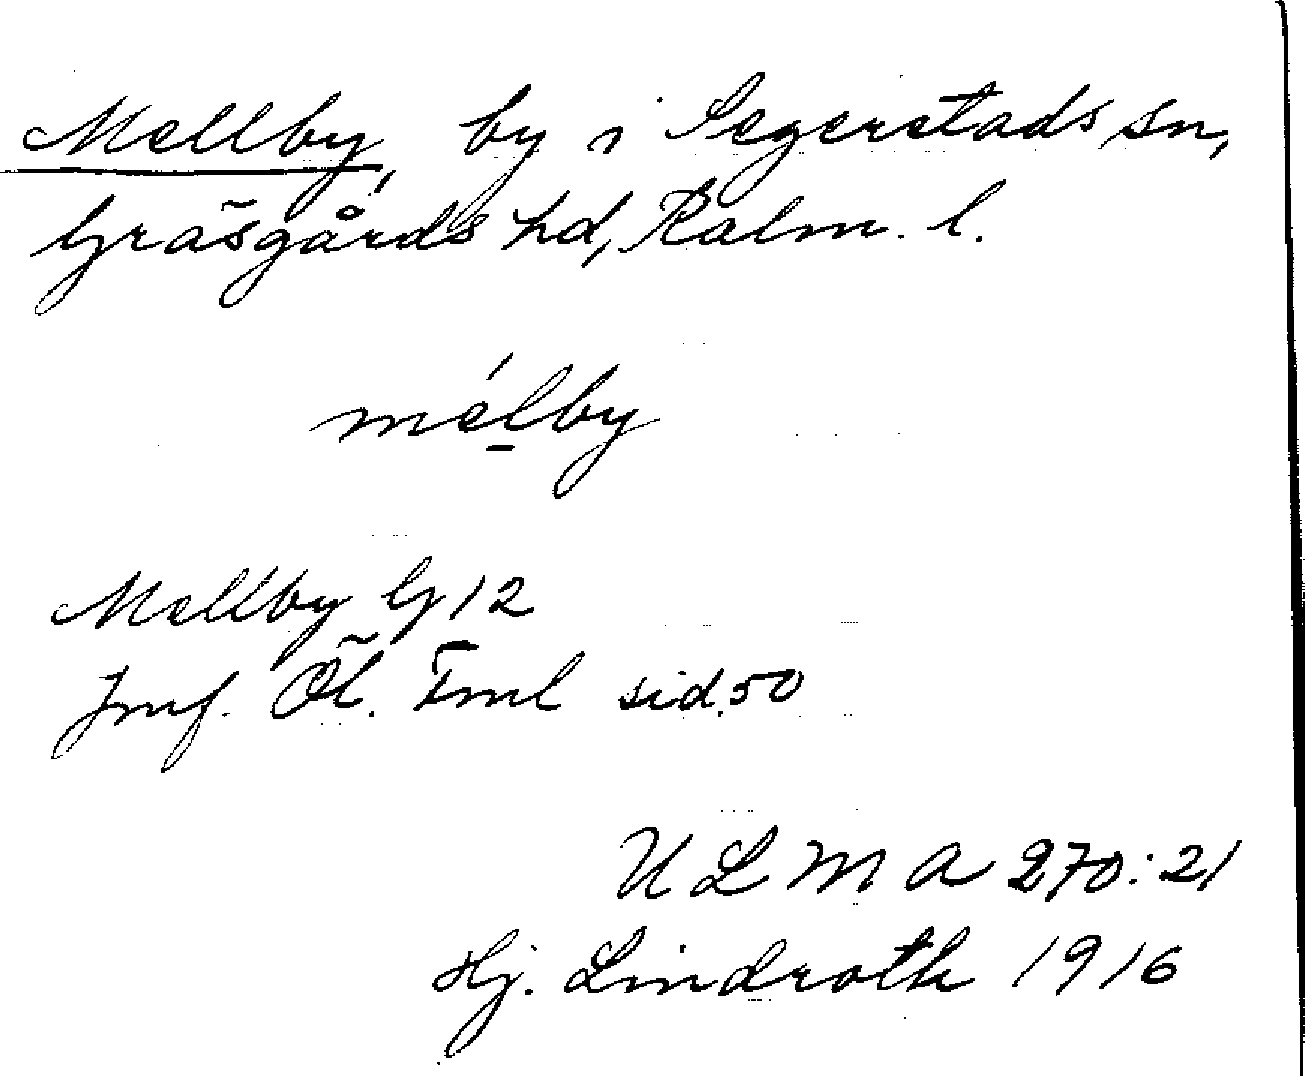 Mellby, by i Segerstads sn,
Gräsgårds hd, Kalm. l.
mélby
Mellby G 12
Jmf. Öl. Fml sid. 50
ULMA 270:21
Hj. Lindroth 1916